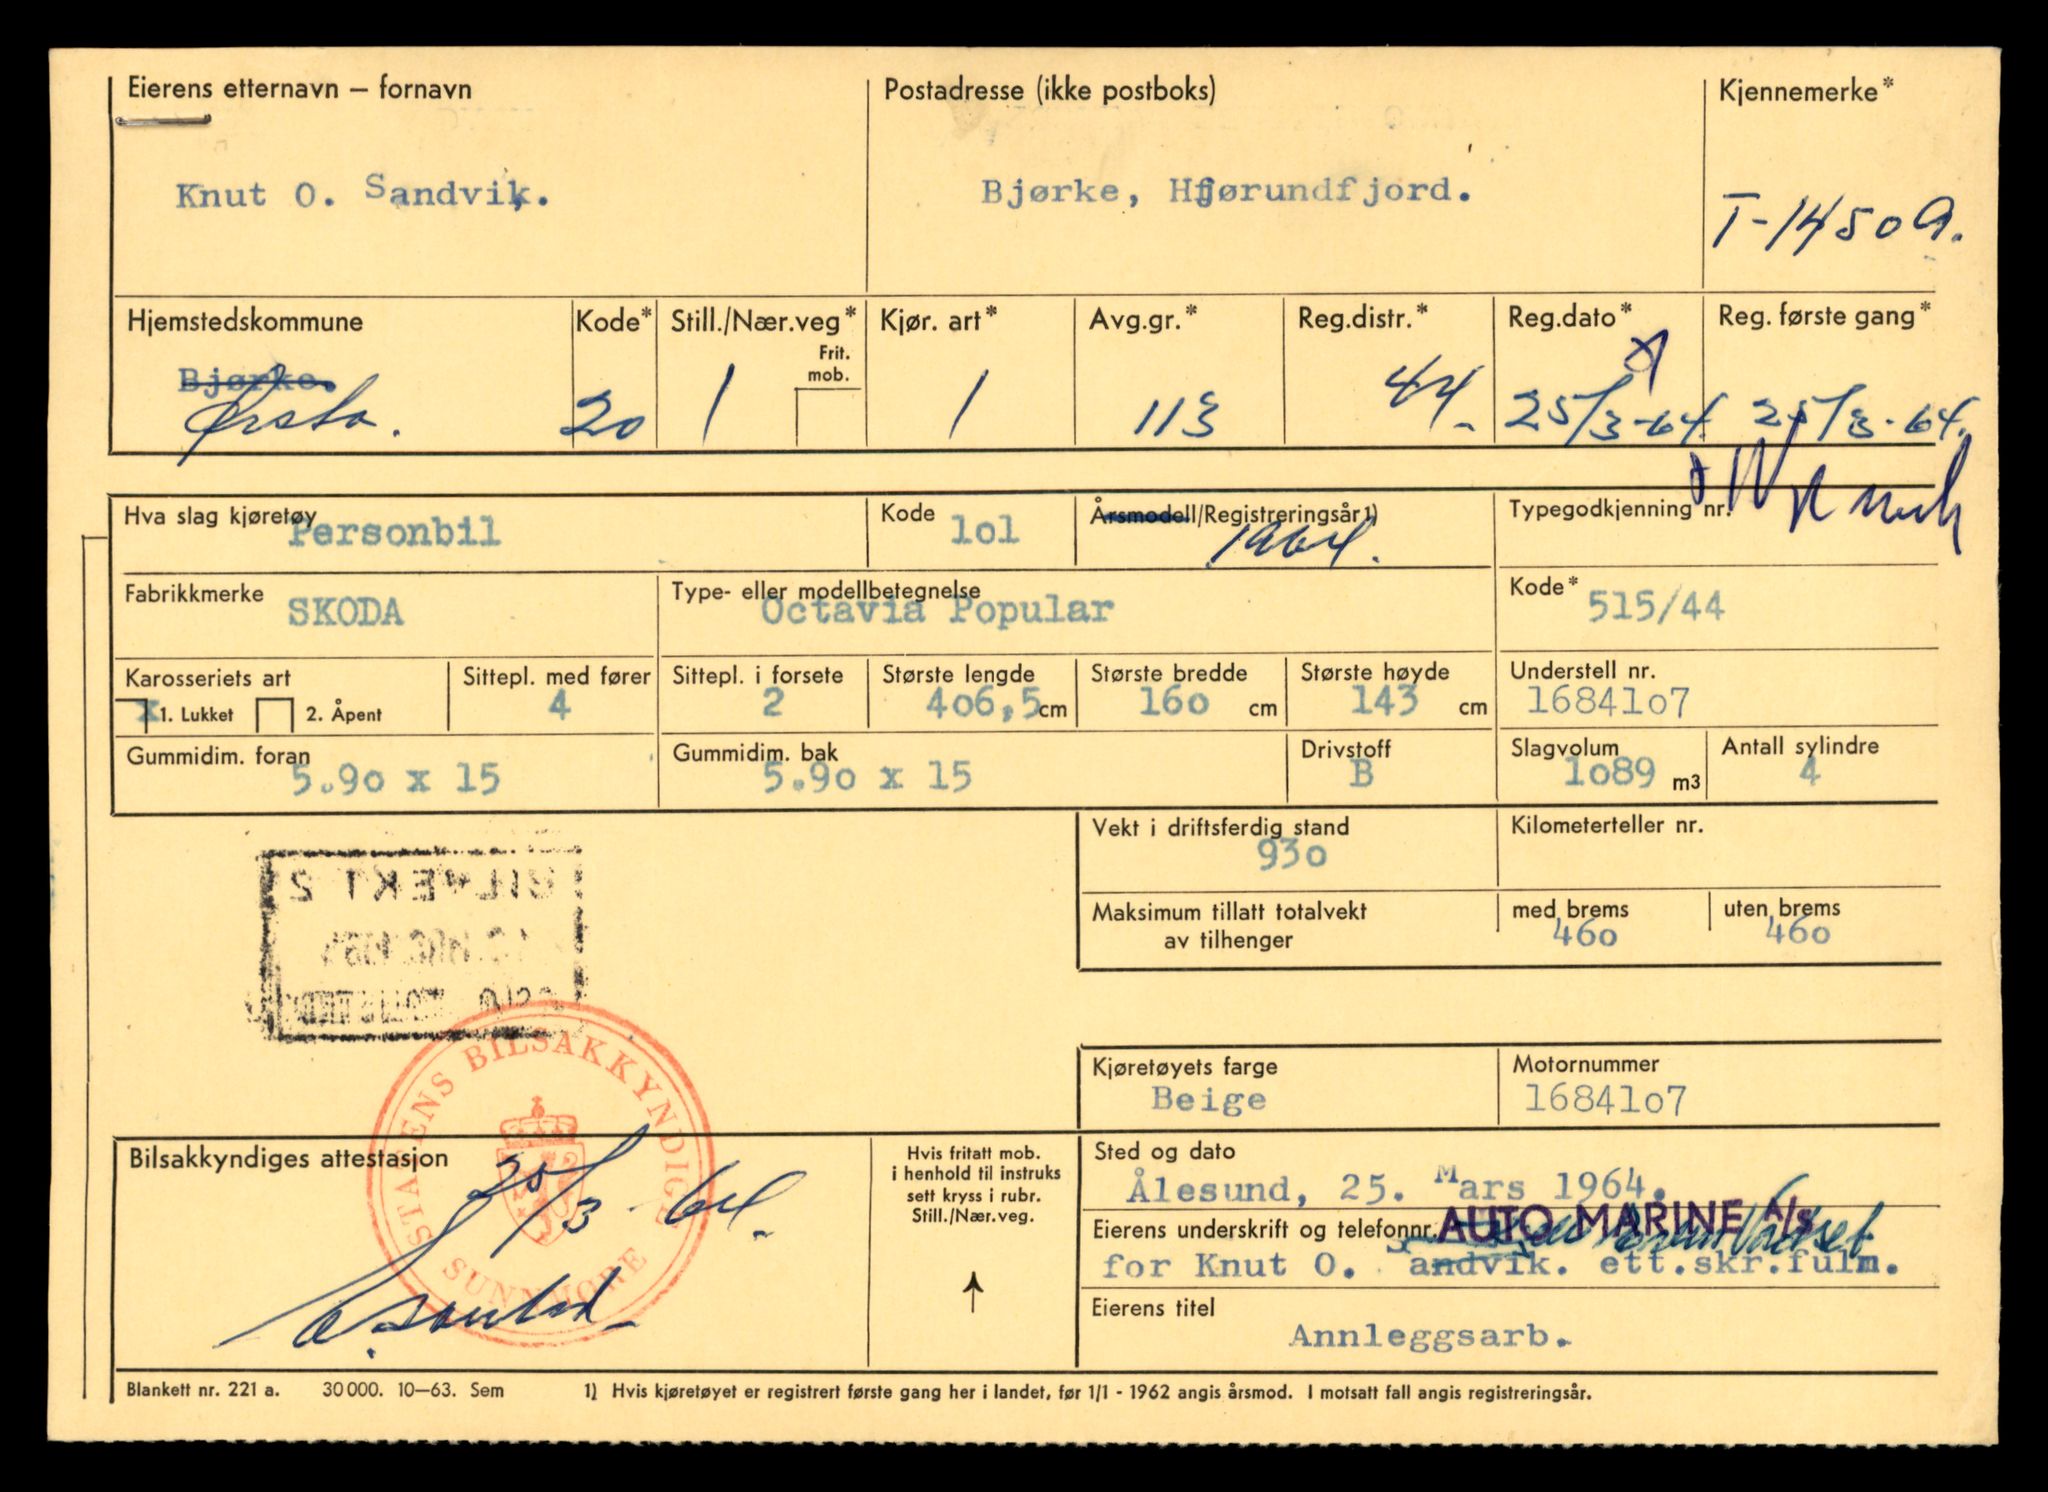 Eierens etternavn — fornavn
Postadresse (ikke postboks)
Kjennemerke*
Knut O. Sandvik.
Bjørke, Hjørundfjord.
T-14509.
Hjemstedskommune
Kode*
Still./Nær.veg*
Frit. mob.
Kjør. art*
Avg.gr.*
Reg.distr.*
Reg.dato*
Reg. første gang*
Bjørke.
Ørsta.
20
1
1
113
44
25/3-64
25/3-64.
Hva slag kjøretøy
Personbil
Kode
1o1
Årsmodell/Registreringsår 1)
1964.
Typegodkjenning nr.
Fabrikkmerke
SKODA
Type- eller modellbetegnelse
Octavia Popular
Kode*
515/44
Karosseriets art
x 1. Lukket
2. Åpent
Sittepl. med fører
4
Sittepl. i forsete
2
Største lengde
4o6,5 cm
Største bredde
16o cm
Største høyde
143 cm
Understell nr.
16841o7
Gummidim. foran
5.9o x 15
Gummidim. bak
5.9o x 15
Drivstoff
B
Slagvolum
1o89 m3
Antall sylindre
4
Vekt i driftsferdig stand
93o
Kilometerteller nr.
Maksimum tillatt totalvekt
av tilhenger
med brems
46o
uten brems
46o
BILVEKT 2
STATENS BILSAKKYNDIGE
SUNNMØRE
Kjøretøyets farge
Beige
Motornummer
16841o7
Bilsakkyndiges attestasjon
25/3-64.
Hvis fritatt mob.
i henhold til instruks
sett kryss i rubr.
Still./Nær.veg.
Sted og dato
Ålesund, 25. Mars 1964.
Eierens underskrift og telefonnr.
AUTO MARINE A/S
for Knut O. Sandvik. ett.skr.fulm.
Eierens titel
Annleggsarb.
Blankett nr. 221 a. 30 000. 10—63. Sem
1) Hvis kjøretøyet er registrert første gang her i landet, før 1/1 - 1962 angis årsmod. I motsatt fall angis registreringsår.